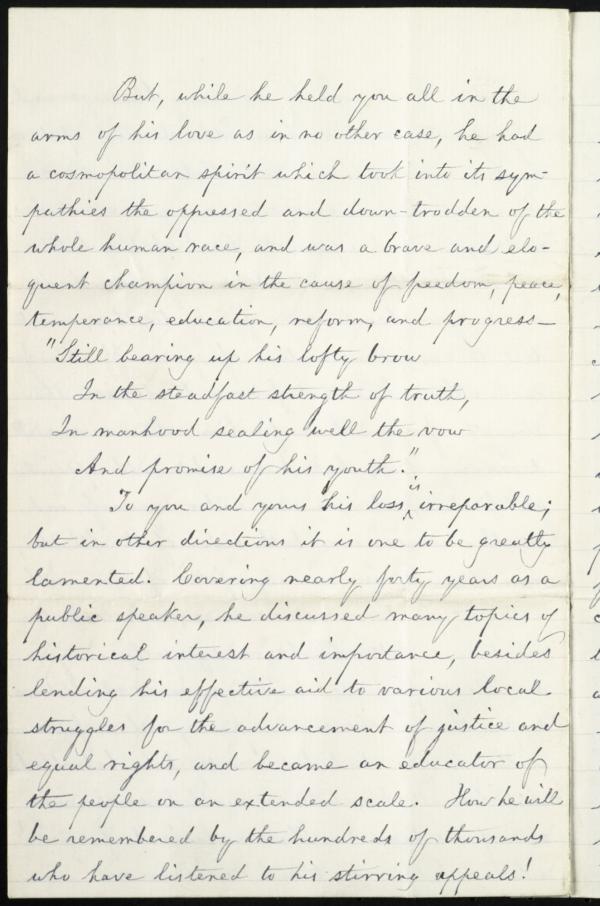 But, while he held you all in the
arms of his love as in no other case, he had
a cosmopolitan spirit which took into its sym-
pathies the oppressed and down-trodden of the
whole human race, and was a brave and elo-
quent champion in the cause of freedom, peace,
temperance, education, reform, and progress—
"Still bearing up his lofty brow
In the steadfast strength of truth,
In manhood sealing well the vow
And promise of his youth."
To you and yours his loss is irreparable;
but in other directions it is one to be greatly
lamented. Covering nearly forty years as a
public speaker, he discussed many topics of
historical interest and importance, besides
lending his effective aid to various local
struggles for the advancement of justice and
equal rights, and became an educator of
the people on an extended scale. How he will
be remembered by the hundreds of thousands
who have listened to his stirring appeals!